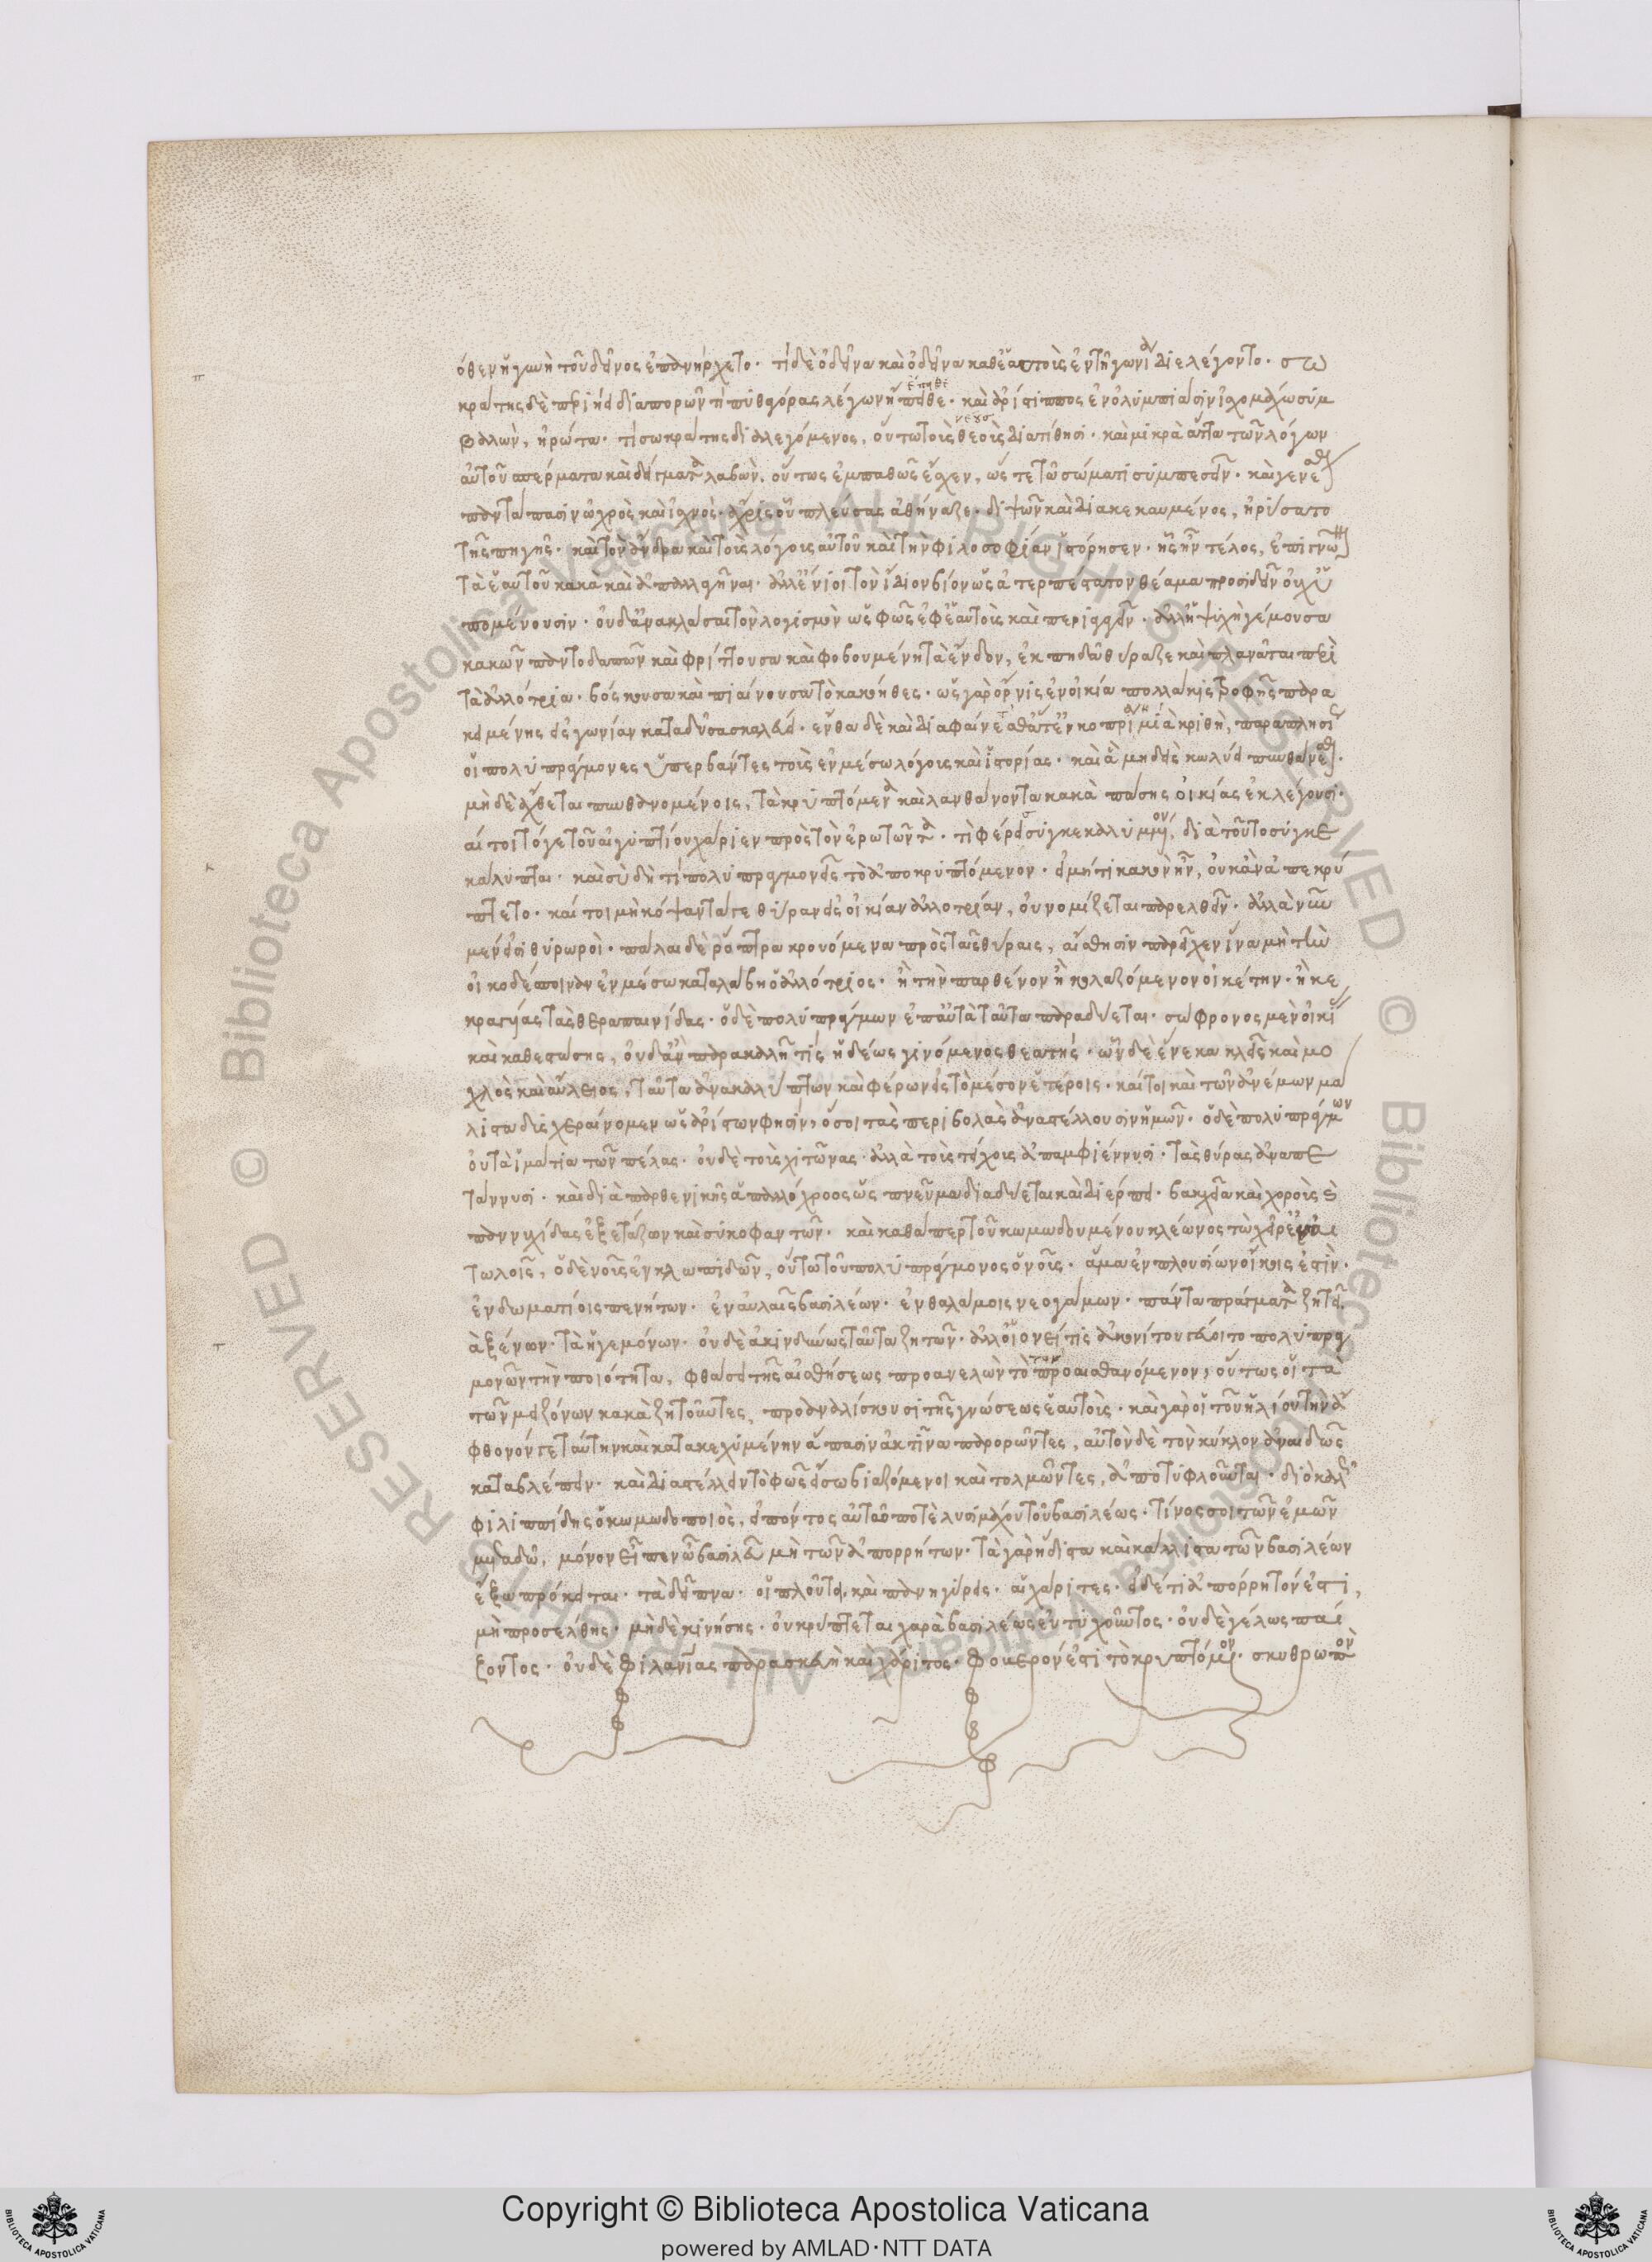 ὅθεν ἡ γυνὴ τοῦ δεῖνος ἐπανήρχετο. τί δὲ ὁ δεῖνα καὶ ὁ δεῖνα καθ' ἑαυτοὺς ἐν τῇ γωνίᾳ διελέγοντο. σω
κράτης δὲ περιήει διαπορῶν τί πυθαγόρας λέγων ἔπειθε. καὶ ἀρίστιππος ἐν ὀλυμπίασιν ἰσχομάχω συμ
βαλὼν, ἠρώτα. τί σωκράτης διαλεγόμενος, οὕτω τοὺς νέους διατίθησι. καὶ μικρὰ ἄττα τῶν λόγων
αὐτοῦ σπέρματα καὶ δείγματα λαβὼν. οὕτως ἐμπαθῶς ἔσχεν, ὥστε τῶ σώματι συμπεσεῖν. καὶ γενέσθαι
παντάπασιν ὠχρὸς καὶ ἰσχνὸς. ἄχρις οὗ πλεύσας ἀθήναζε. διψῶν καὶ διακεκαυμένος, ἠρύσατο
τῆς πηγῆς. καὶ τὸν ἄνδρα καὶ τοὺς λόγους αὐτοῦ καὶ τὴν φιλοσοφίαν ἱστόρησεν. ἧς ἦν τέλος, ἐπιγνῶναι
τὰ ἑαυτοῦ κακὰ καὶ ἀπαλλαγῆναι. ἀλλ' ἔνιοι τὸν ἴδιον βίον ὡς ἀτερπέστατον θέαμα προσιδεῖν οὐχ ὑ
πομένουσιν. οὐδ' ἀνακλάσαι τὸν λογισμὸν ὡς φῶς ἐφ' ἑαυτοὺς καὶ περιαγαγεῖν. ἀλλ' ἡ ψυχὴ γέμουσα
κακῶν παντοδαπῶν καὶ φρίττουσα καὶ φοβουμένη τὰ ἔνδον, ἐκπηδᾶ θύραζε καὶ πλανᾶται περὶ
τὰ ἀλλότρια. βόσκουσα καὶ πιαίνουσα τὸ κακόηθες. ὡς γὰρ ὄρνις ἐν οἰκία πολλάκις τροφῆς παρα
κειμένης εἰς γωνίαν καταδῦσα σκαλεύει. ἔνθα δὲ καὶ διαφαίνεται ἅτ' ἐν κοπρίᾳ μία κριθὴ, παραπλησίως
οἱ πολυπράγμονες ὑπερβάντες τοὺς ἐν μέσω λόγους καὶ ἱστορίας. καὶ ἃ μηδεὶς κωλύει πυνθάνεσθαι.
μηδὲ ἄχθεται πυνθανομένοις, τὰ κρυπτόμενα καὶ λανθάνοντα κακὰ πάσης οἰκίας ἐκλέγουσι.
καίτοι τό γε τοῦ αἰγυπτίου χαρίεν πρὸς τὸν ἐρωτῶντα. τί φέρει συγκεκαλυμμένον, διὰ τοῦτο συγκε
κάλυπται. καὶ σὺ δὴ τί πολυπραγμονεῖς τὸ ἀποκρυπτόμενον. εἰ μή τι κακὸν ἦν, οὐκ ἂν ἀπεκρύ
πτετο. καίτοι μὴ κόψαντά γε θύραν εἰς οἰκίαν ἀλλοτρίαν, οὐ νομίζεται παρελθεῖν. ἀλλὰ νῦν
μέν εἰσι θυρωροὶ. πάλαι δὲ ῥόπτρα κρουόμενα πρὸς ταῖς θύραις, αἴσθησιν παρεῖχεν ἵνα μὴ τὴν
οἰκοδέσποιναν ἐν μέσω καταλάβη ὁ ἀλλότριος. ἢ τὴν παρθένον ἢ κολαζόμενον οἰκέτην. ἢ κε
κραγυίας τὰς θεραπαινίδας. ὁ δὲ πολυπράγμων ἐπ' αὐτὰ ταῦτα παραδύεται. σώφρονος μὲν οἰκίας
καὶ καθεστώσης, οὐδ' ἂν παρακαλῆ τίς ἡδέως γινόμενος θεατής. ὧν δὲ ἕνεκα κλεῖς καὶ μο
χλὸς καὶ αὔλειος, ταῦτα ἀνακαλύπτων καὶ φέρων εἰς τὸ μέσον ἑτέροις. καίτοι καὶ τῶν ἀνέμων μά
λιστα δυσχεραίνομεν ὡς ἀρίστων φησὶν, ὅσοι τὰς περιβολὰς ἀναστέλλουσιν ἡμῶν. ὁ δὲ πολυπράγμων
οὐ τὰ ἱμάτια τῶν πέλας. οὐδὲ τοὺς χιτῶνας. ἀλλὰ τοὺς τοίχους ἀπαμφιέννυσι. τὰς θύρας ἀναπε
τάννυσι. καὶ διὰ παρθενικῆς ἁπαλόχροος ὡς πνεῦμα διαδύεται καὶ διέρπει. βακχεῖα καὶ χοροὺς καὶ
παννυχίδας ἐξετάζων καὶ συκοφαντῶν. καὶ καθάπερ τοῦ κωμωδουμένου κλέωνος τὼ χεῖρ' ἐν αἰ
τωλοῖς, ὁ δὲ νοῦς ἐν κλωπιδῶν, οὕτω τοῦ πολυπράγμονος ὁ νοῦς. ἅμα ἐν πλουσίων οἴκοις ἐστὶν.
ἐν δωματίοις πενήτων. ἐν αὐλαῖς βασιλέων. ἐν θαλάμοις νεογάμων. πάντα πράγματα ζητεῖ.
τὰ ξένων. τὰ ἡγεμόνων. οὐδὲ ἀκινδύνως ταῦτα ζητῶν. ἀλλ' οἷον εἴ τις ἀκονίτου γεύοιτο πολυπραγ
μονῶν τὴν ποιότητα, φθάσει τῆς αἰσθήσεως προανελὼν τὸν προαισθανόμενον, οὕτως οἱ τὰ
τῶν μειζόνων κακὰ ζητοῦντες, προαναλίσκουσι τῆς γνώσεως ἑαυτοὺς. καὶ γὰρ οἱ τοῦ ἡλίου τὴν ἄ
φθονόν γε ταύτην καὶ κατακεχυμένην ἅπασιν ἀκτῖνα παρορῶντες, αὐτὸν δὲ τὸν κύκλον ἀναιδῶς
καταβλέπειν. καὶ διαστέλλειν τὸ φῶς εἴσω βιαζόμενοι καὶ τολμῶντες, ἀποτυφλοῦνται. διὸ καλῶς
φιλιππίδης ὁ κωμωδοποιὸς, εἰπόντος αὐτῶ ποτὲ λυσιμάχου τοῦ βασιλέως. τίνος σοι τῶν ἐμῶν
μεταδῶ, μόνον εἶπεν ὦ βασιλεῦ μὴ τῶν ἀπορρήτων. τὰ γὰρ ἥδιστα καὶ κάλλιστα τῶν βασιλέων
ἔξω πρόκειται. τὰ δεῖπνα. οἱ πλοῦτοι, καὶ πανηγύρεις. αἱ χάριτες. εἰ δέ τι ἀπόρρητόν ἐστι,
μὴ προσέλθης. μηδὲ κινήσης. οὐ κρύπτεται χαρὰ βασιλέως εὐτυχοῦντος. οὐδὲ γέλως παί
ζοντος. οὐδὲ φιλανθρωπίας παρασκευὴ καὶ χάριτος. φοβερόν ἐστι τὸ κρυπτόμενον. σκυθρωπὸν